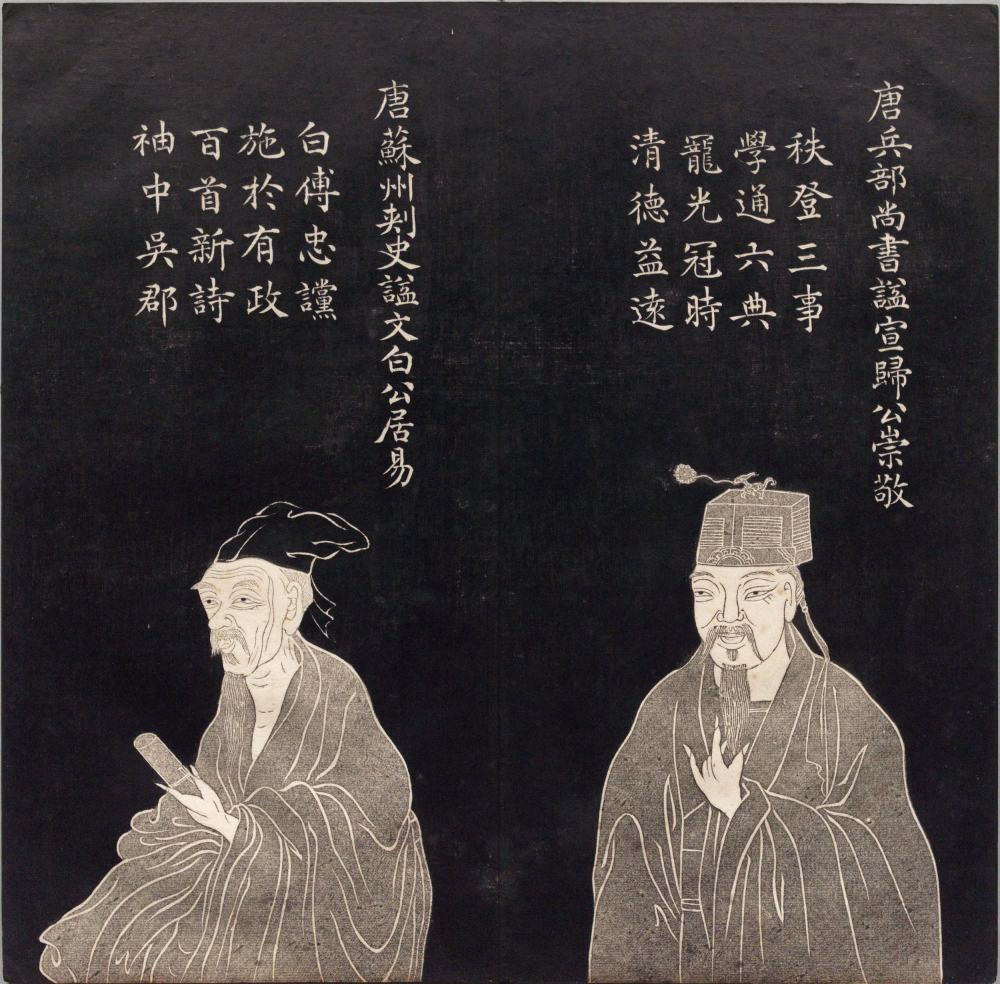 唐兵部尚書謚宣歸公崇敬
秩登三事
學通六典
寵光冠時
清德益遠
唐蘇州刺史謚文白公居易
白傅忠讜
施於有政
百首新詩
袖中吳郡